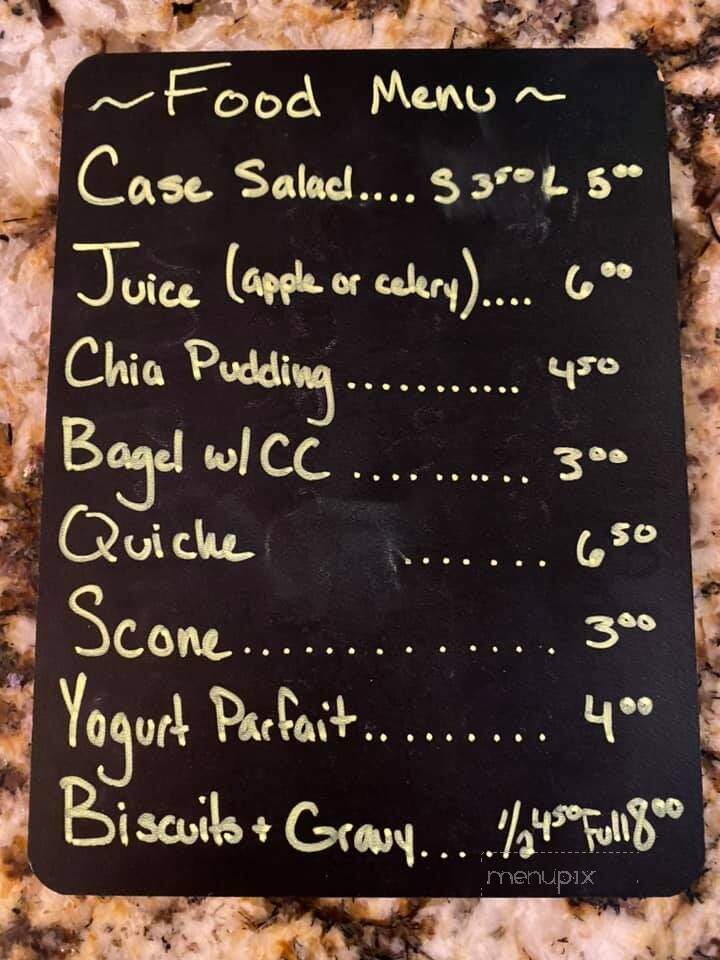 ~Food Menu~
Case Salad.... S 3⁵⁰ L 5⁰⁰
Juice (apple or celery).... 6⁰⁰
Chia Pudding ........... 4⁵⁰
Bagel w/ CC .... ...... 3⁰⁰
Quiche ....... 6⁵⁰
Scone.............. 3⁰⁰
Yogurt Parfait......... 4⁰⁰
Biscuits + Gravy.... 1/2 4⁵⁰ Full 8⁰⁰
menupix